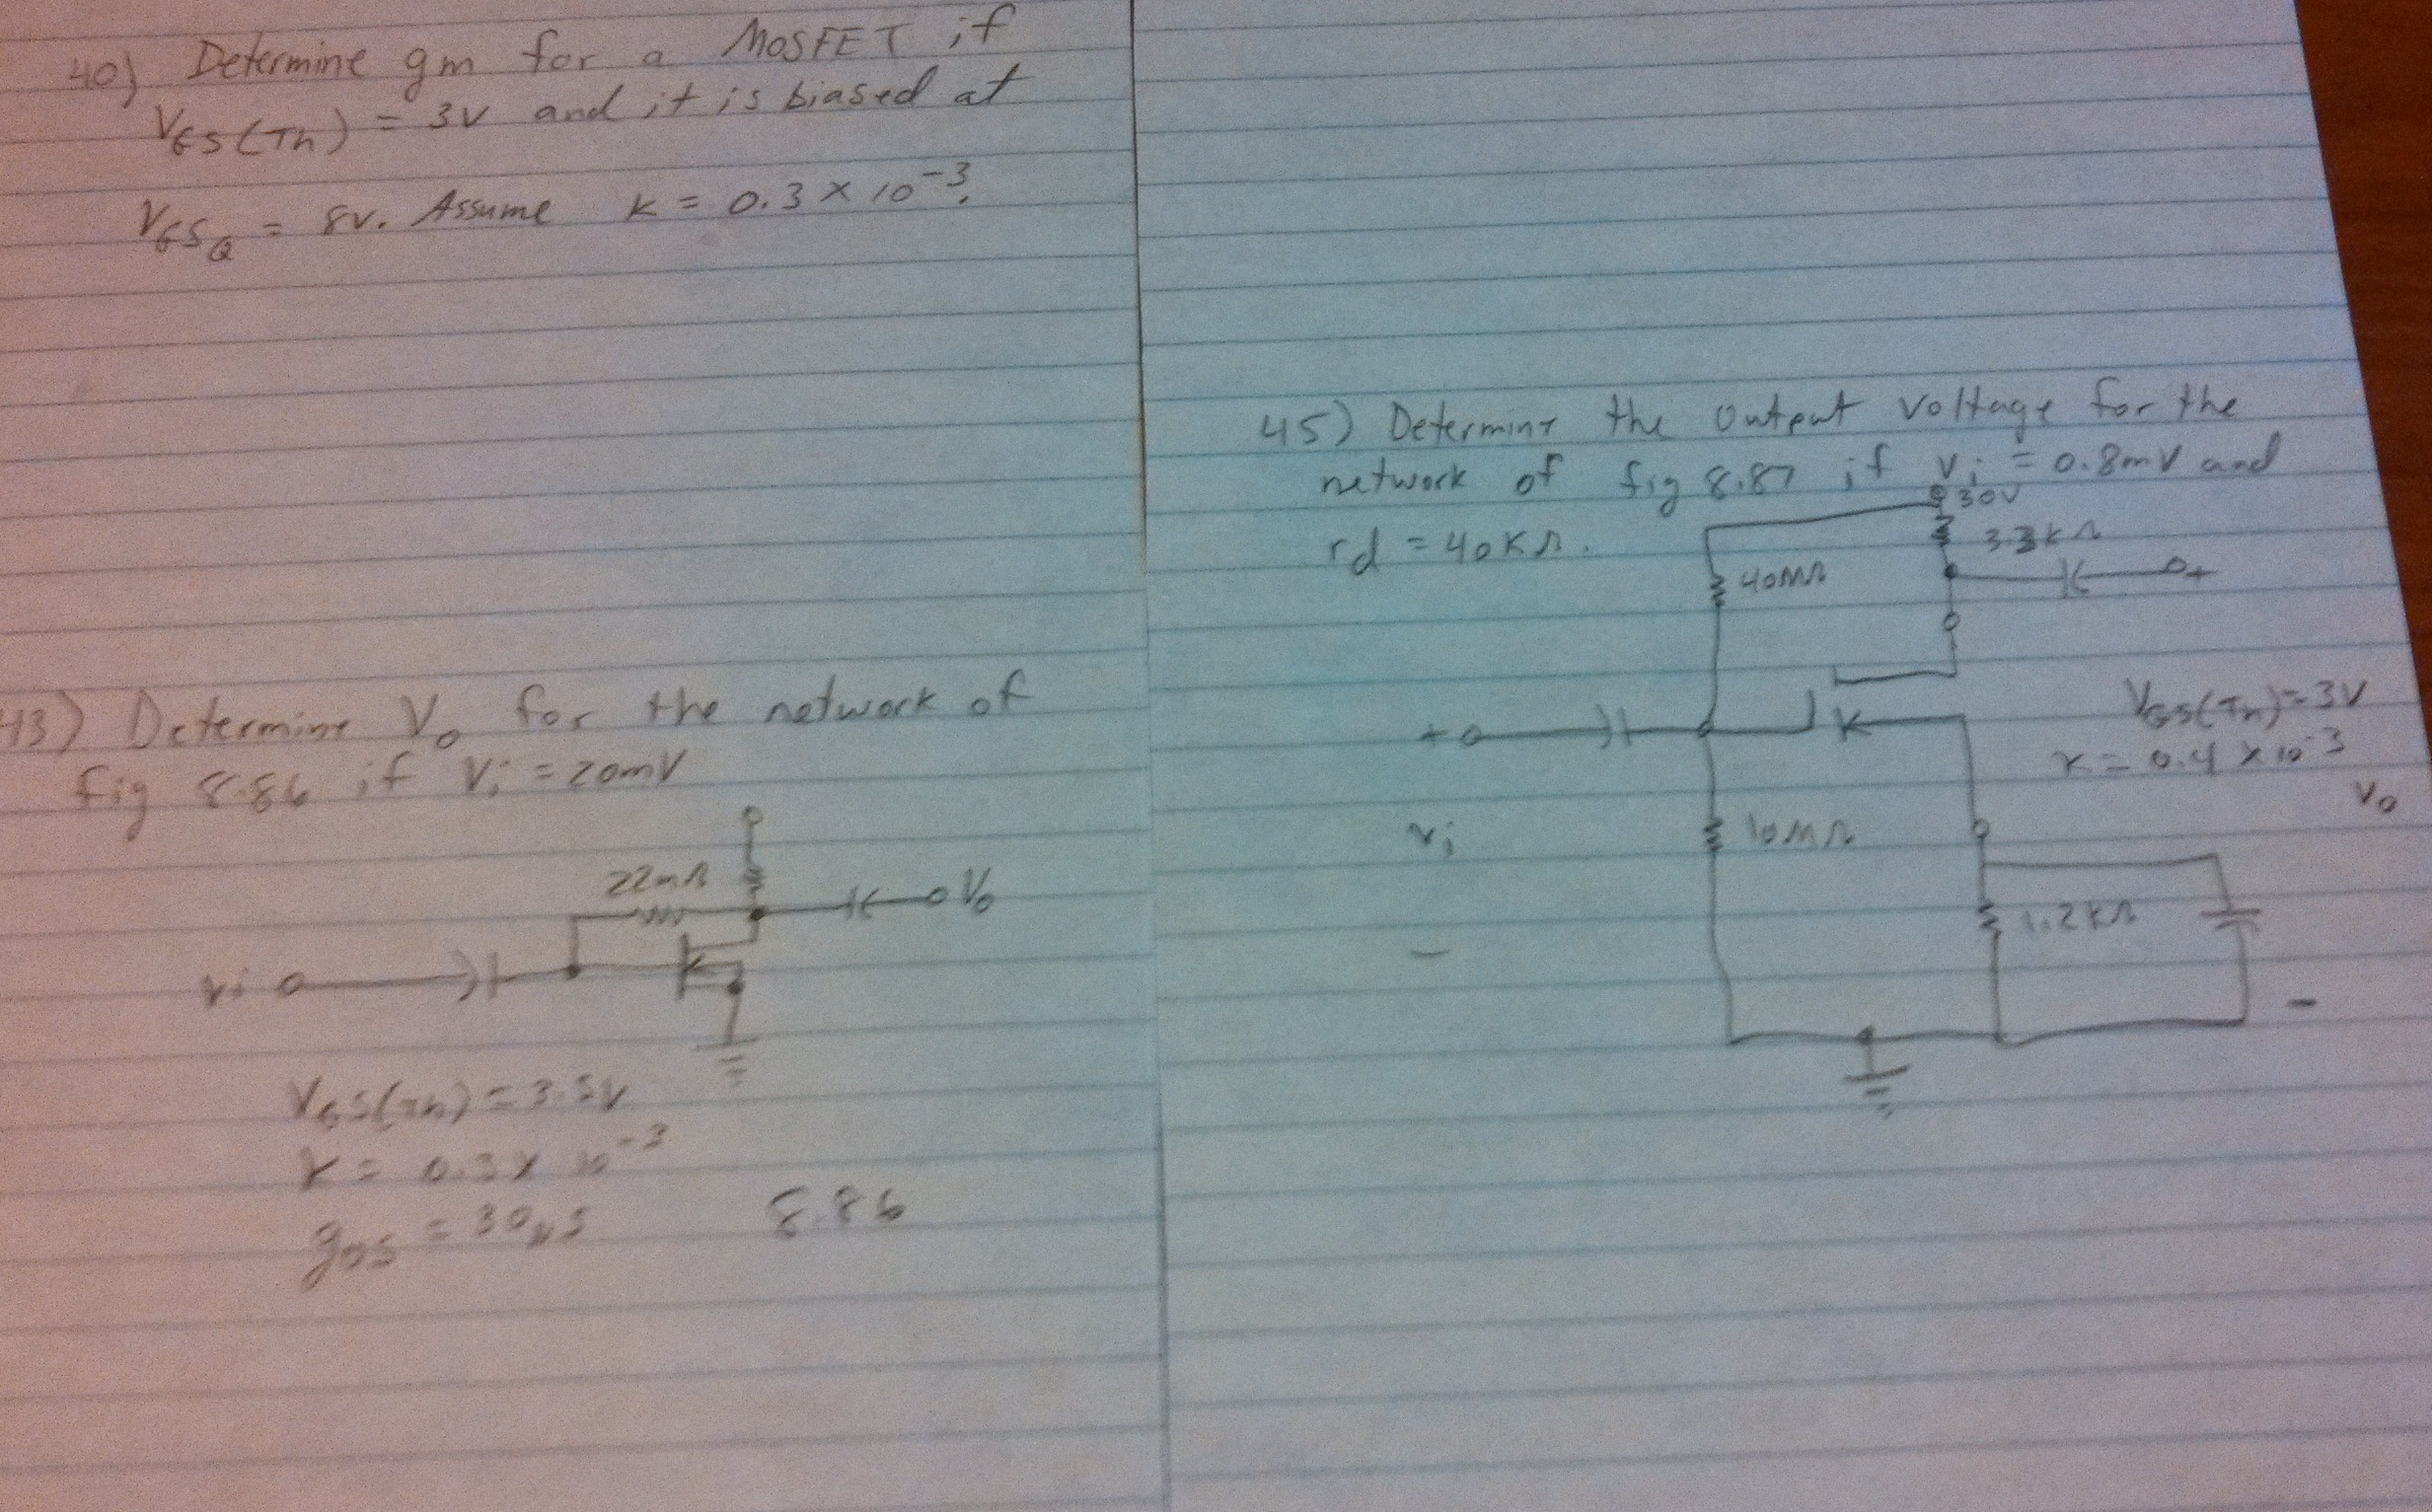 40) Determine gm for a MOSFET if
VGS(Th) = 3V and it is biased at
VGSQ = 8V. Assume K = 0.3 x 10^-3.
43) Determine Vo for the network of
fig 8.86 if Vi = 20mV
22mΩ
Vo
vi
VGS(Th) = 3.5V
K = 0.3 x 10^-3
gos = 30μs
8.86
45) Determine the output voltage for the
network of fig 8.87 if vi = 0.8mV and
rd = 40KΩ.
30V
3.3KΩ
40MΩ
+
+
VGS(Th) = 3V
K = 0.4 x 10^-3
Vo
vi
10MΩ
1.2KΩ
-
-